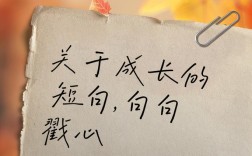 关于成长的
短句,句句
戳心